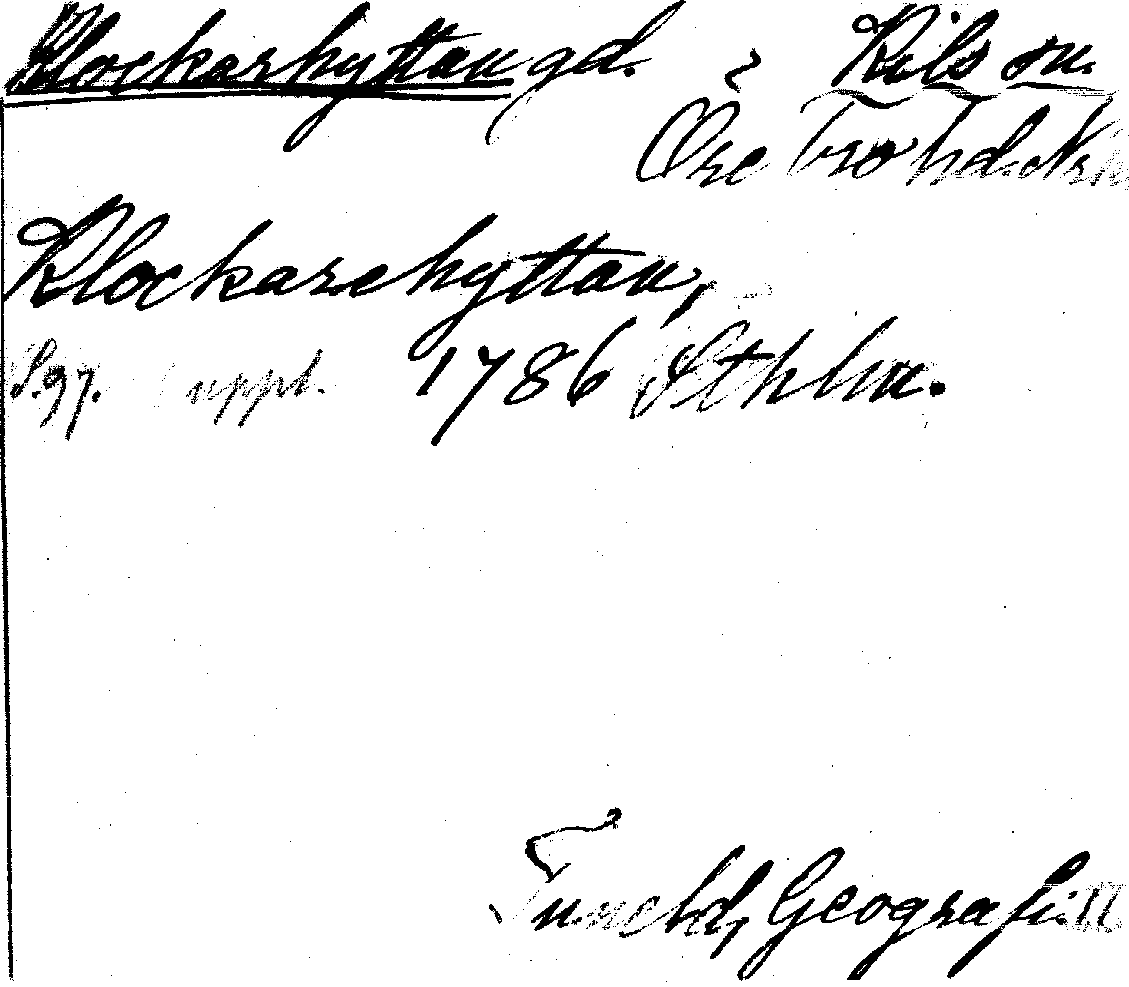 Klockarhyttan gd. i Kils sn.
Örebro hd. Nrk.
Klockarehyttan,
S. 97. uppl. 1786 Sthlm.
Tuneld, Geografi. II